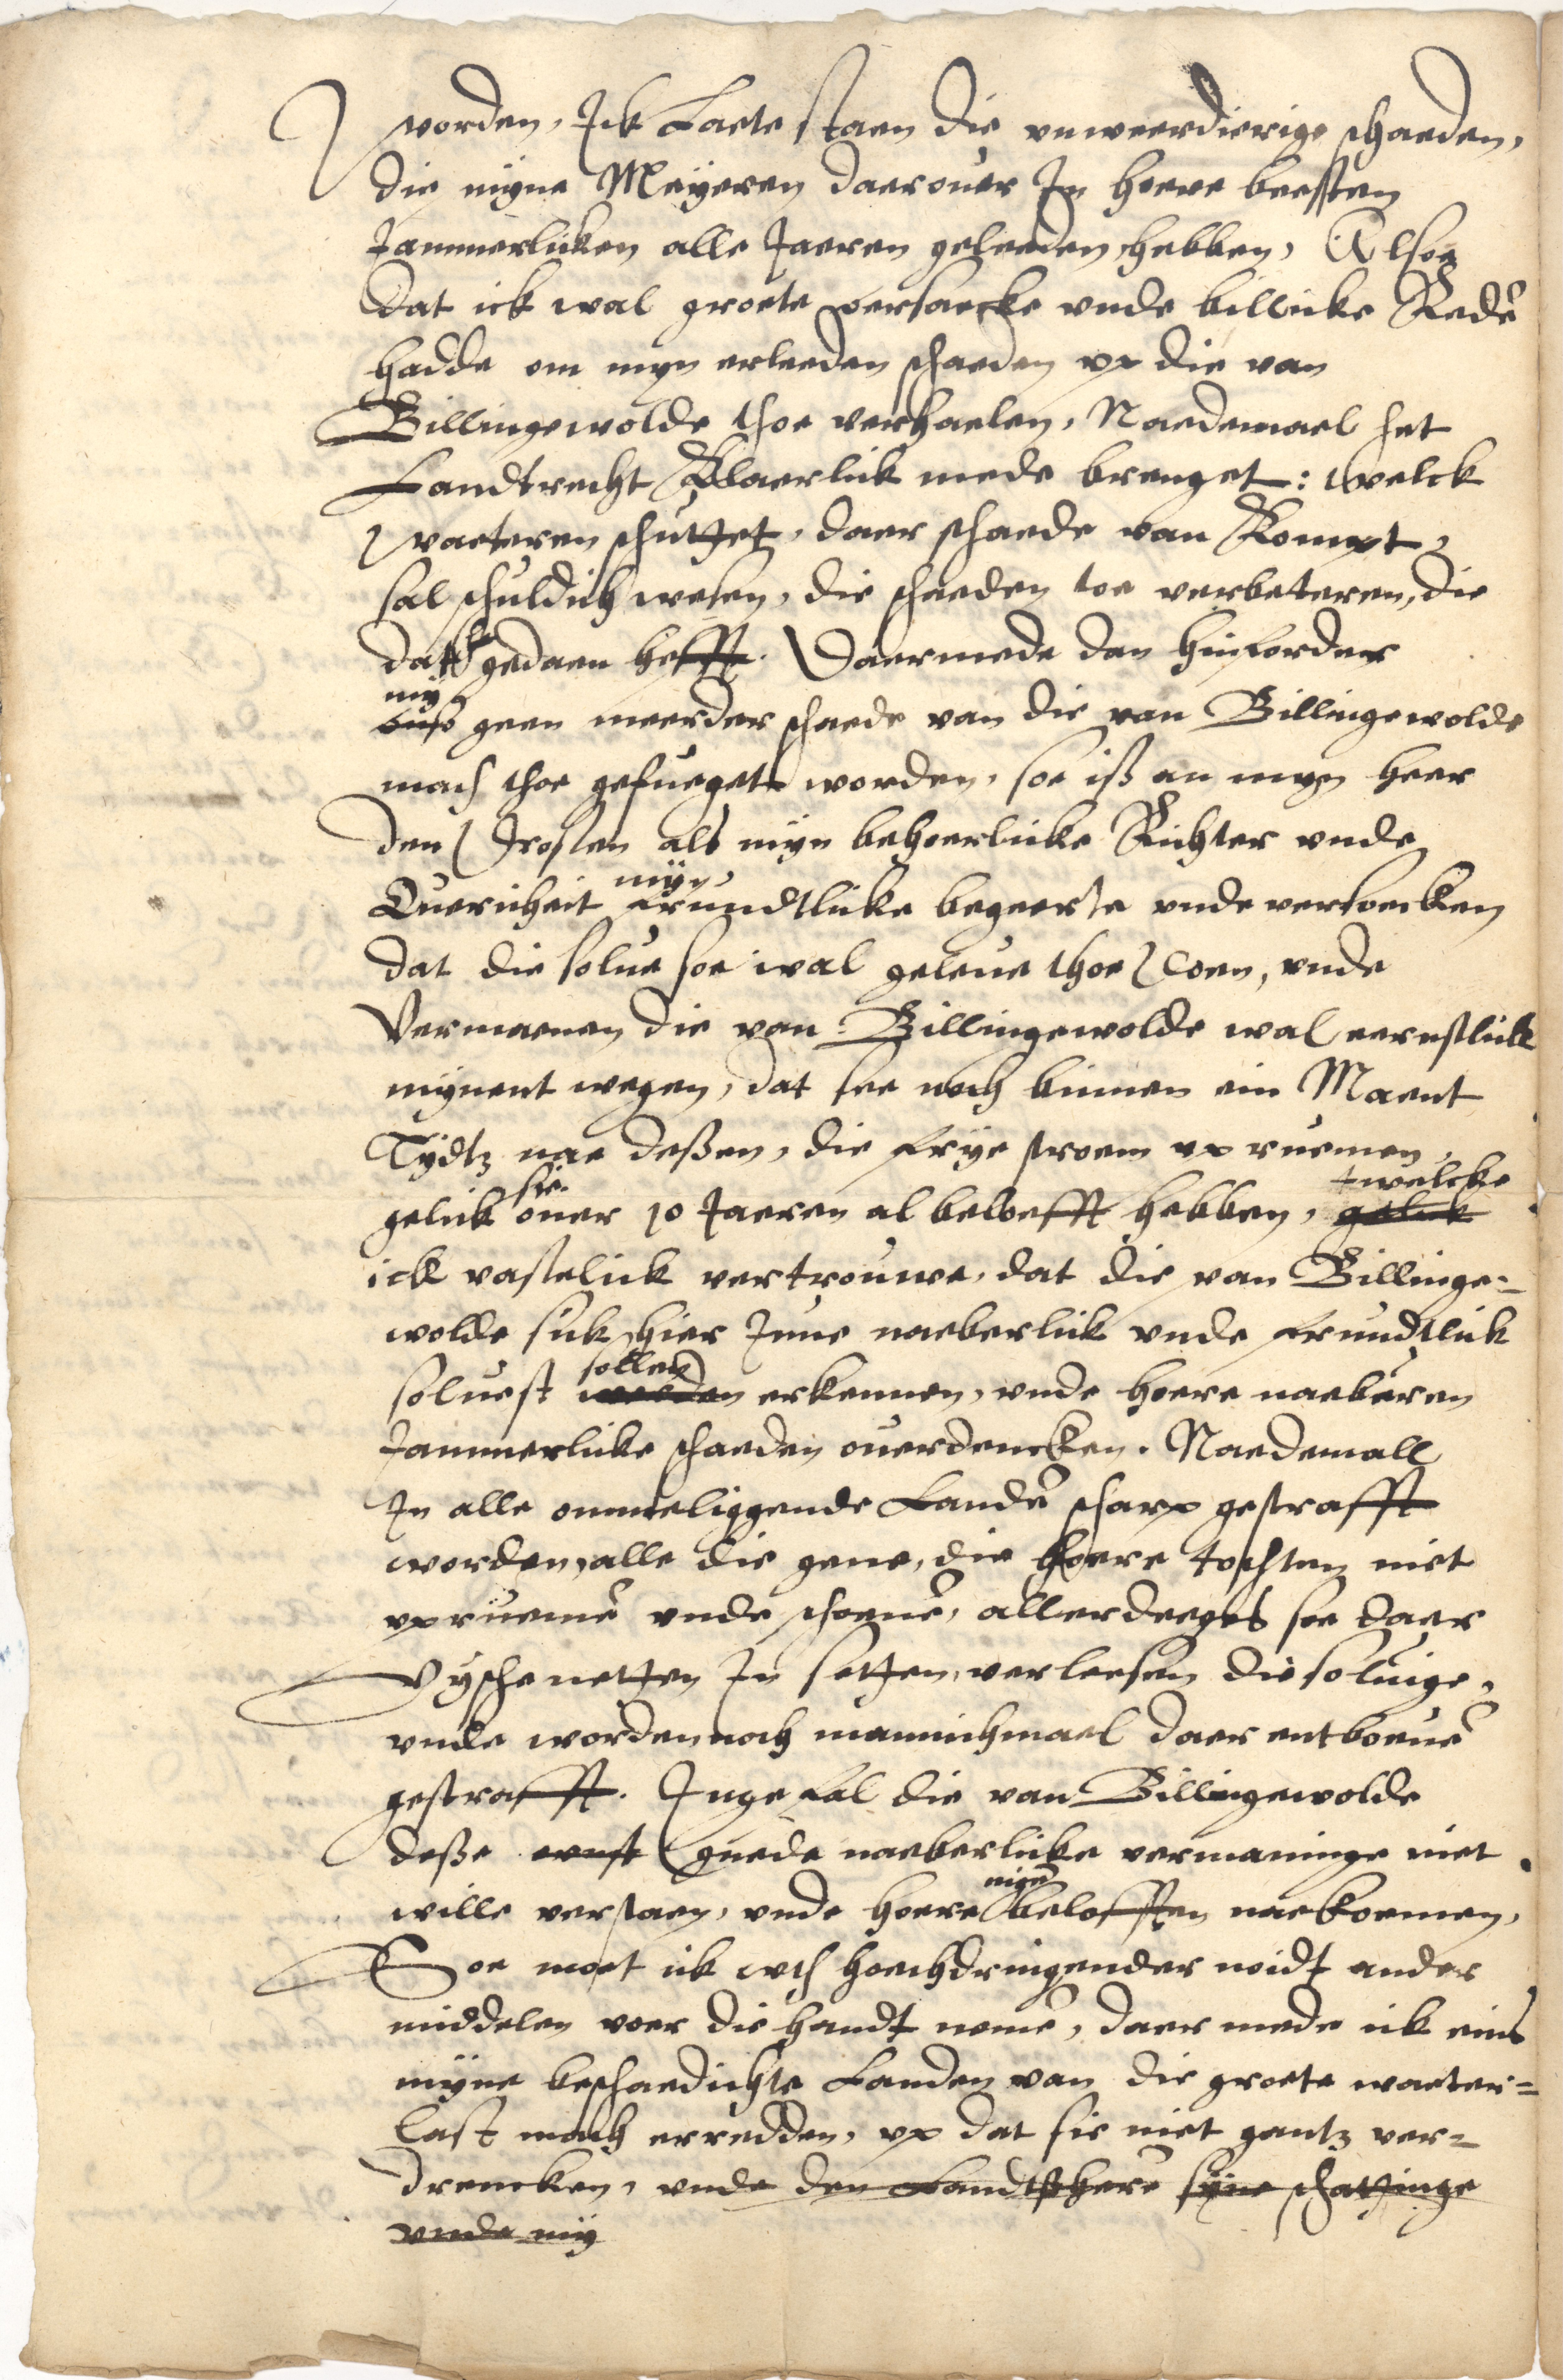 worden, Ick Laete staen die unweerdierige schaeden,
die myne Meÿeren daerouer In hoere beesten
Jammerlicken alle Jaeren geleeden hebben, Alsoe
dat ick wal groete oersaecke vnde billicke Redē
hadde om myn erleeden schaeden vp die van
Billingewolde thoe verhaelen, Naedemael het
Landtrecht Klaerlick mede brenget: welck
waeteren schuttet, daer schaede van Kompt,
sal schuldich wesen, die schaeden toe verbeteren, die
dat gedaen hefft. Daermede dan hinforder
mÿ
geen meerder schaede van die van Billingewolde
mach thoe gefueget worden, soe iß an myn heer
den Drosten als mÿn behoerlicke Richter vnde
mÿn
Ouericheit frundtlicke begeerte vnde versoecken
dat die solue soe wal geleue thoe doen, vnde
Vermaenen die van Billingewolde wal eernstlick
mÿnent wegen, dat see noch binnen ein Maent
Tÿdtz nae deßen, die frÿe stroem vp ruemen,
sie twelcke
gelick ouer 10 Jaeren al beloefft hebben, gelick
ick vastelick vertrouwe, dat die van Billinge=
wolde sick hier Inne naeberlick vnde frundtlick
sollen
soluest werden erkennen, vnde hoere naeburen
Jammerlicke schaeden ouerdencken. Naedemall
In alle ommeliggende Landē scharp gestrafft
worden, alle die gene, die hoere tochten niet
vpruemē vnde schoenē, allerdeeges soe daer
Vÿsche netten In setten, verleesen die soluige,
vnde worden noch mannichmael daer entboeuē
gestrafft. Ingefal die van Billingewolde
deße ernst guede naeberlicke vermaninge niet
wille verstaen, vnde hoere belofften naekoemen,
Soe moet ick vth hoechdringender noidt ander
middelen voer die handt nemē, daer mede ick eins
mÿne beschaedichte Landen van die groete waeter=
last mach erredden, vp dat sie niet gantz ver=
drencken, vnde den Landtßhere sÿne schattinge
vnde mÿ